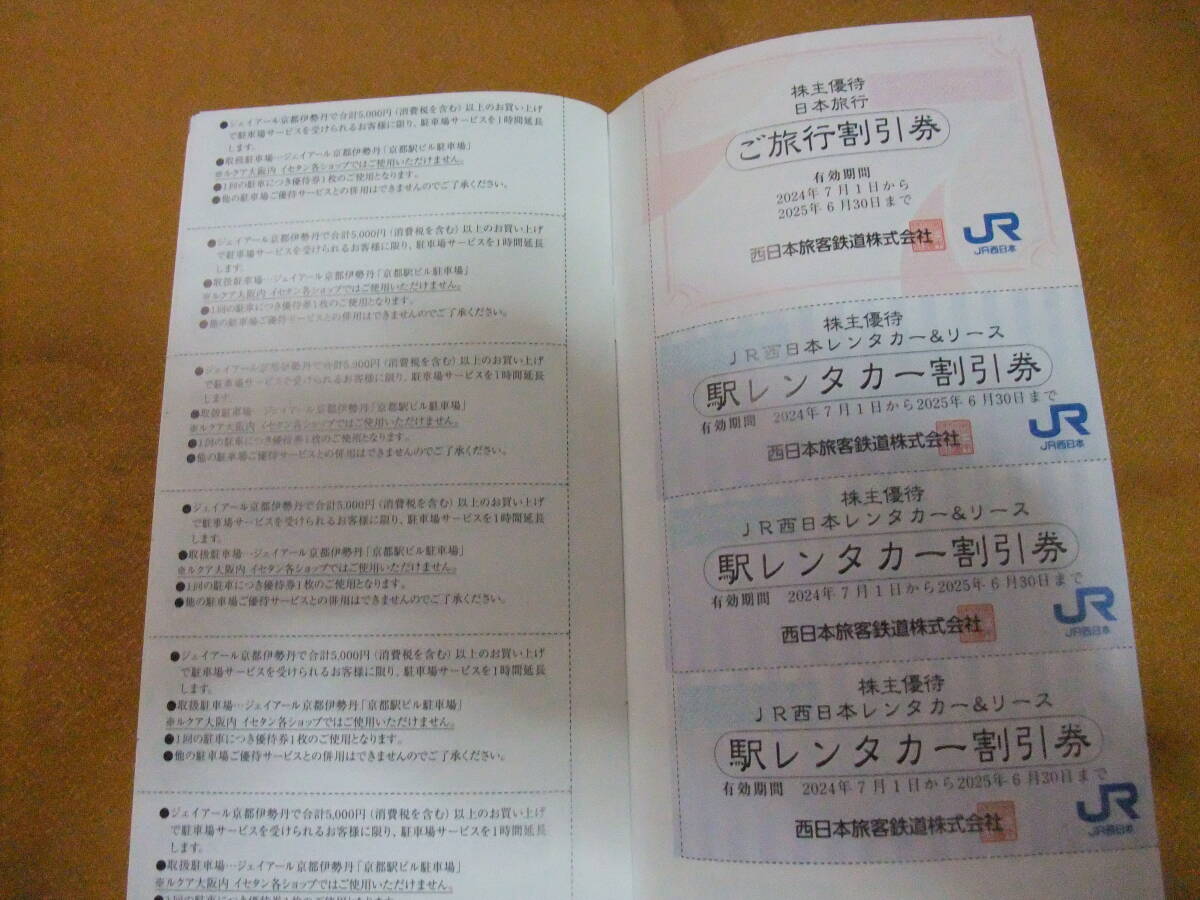 ●ジェイアール京都伊勢丹で合計5,000円(消費税を含む)以上のお買い上げ
で駐車場サービスを受けられるお客様に限り、駐車場サービスを1時間延長
します。
●取扱駐車場…ジェイアール京都伊勢丹「京都駅ビル駐車場」
※ルクア大阪内 イセタン各ショップではご使用いただけません。
●1回の駐車につき優待券1枚のご使用となります。
●他の駐車場ご優待サービスとの併用はできませんのでご了承ください。
●ジェイアール京都伊勢丹で合計5,000円(消費税を含む)以上のお買い上げ
で駐車場サービスを受けられるお客様に限り、駐車場サービスを1時間延長
します。
●取扱駐車場…ジェイアール京都伊勢丹「京都駅ビル駐車場」
※ルクア大阪内 イセタン各ショップではご使用いただけません。
●1回の駐車につき優待券1枚のご使用となります。
●他の駐車場ご優待サービスとの併用はできませんのでご了承ください。
●ジェイアール京都伊勢丹で合計5,000円(消費税を含む)以上のお買い上げ
で駐車場サービスを受けられるお客様に限り、駐車場サービスを1時間延長
します。
●取扱駐車場…ジェイアール京都伊勢丹「京都駅ビル駐車場」
※ルクア大阪内 イセタン各ショップではご使用いただけません。
●1回の駐車につき優待券1枚のご使用となります。
●他の駐車場ご優待サービスとの併用はできませんのでご了承ください。
●ジェイアール京都伊勢丹で合計5,000円(消費税を含む)以上のお買い上げ
で駐車場サービスを受けられるお客様に限り、駐車場サービスを1時間延長
します。
●取扱駐車場…ジェイアール京都伊勢丹「京都駅ビル駐車場」
※ルクア大阪内 イセタン各ショップではご使用いただけません。
●1回の駐車につき優待券1枚のご使用となります。
●他の駐車場ご優待サービスとの併用はできませんのでご了承ください。
●ジェイアール京都伊勢丹で合計5,000円(消費税を含む)以上のお買い上げ
で駐車場サービスを受けられるお客様に限り、駐車場サービスを1時間延長
します。
●取扱駐車場…ジェイアール京都伊勢丹「京都駅ビル駐車場」
※ルクア大阪内 イセタン各ショップではご使用いただけません。
●1回の駐車につき優待券1枚のご使用となります。
●他の駐車場ご優待サービスとの併用はできませんのでご了承ください。
●ジェイアール京都伊勢丹で合計5,000円(消費税を含む)以上のお買い上げ
で駐車場サービスを受けられるお客様に限り、駐車場サービスを1時間延長
します。
●取扱駐車場…ジェイアール京都伊勢丹「京都駅ビル駐車場」
※ルクア大阪内 イセタン各ショップではご使用いただけません。
株主優待
日本旅行
ご旅行割引券
有効期間
2024年7月1日から
2025年6月30日まで
西日本旅客鉄道株式会社
JR
JR西日本
株主優待
JR西日本レンタカー&リース
駅レンタカー割引券
有効期間 2024年7月1日から2025年6月30日まで
西日本旅客鉄道株式会社
JR
JR西日本
株主優待
JR西日本レンタカー&リース
駅レンタカー割引券
有効期間 2024年7月1日から2025年6月30日まで
西日本旅客鉄道株式会社
JR
JR西日本
株主優待
JR西日本レンタカー&リース
駅レンタカー割引券
有効期間 2024年7月1日から2025年6月30日まで
西日本旅客鉄道株式会社
JR
JR西日本